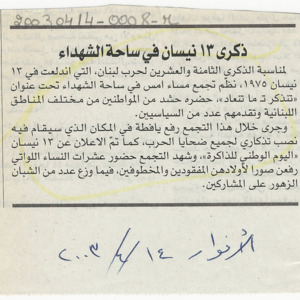 20030414-0008-M
ذكرى ١٣ نيسان في ساحة الشهداء
لمناسبة الذكرى الثامنة والعشرين لحرب لبنان، التي اندلعت في ١٣
نيسان ١٩٧٥، نظم تجمع مساء امس في ساحة الشهداء تحت عنوان
«تنذكر تـ ما تنعاد»، حضره حشد من المواطنين من مختلف المناطق
اللبنانية وتقدمهم عدد من السياسيين.
وجرى خلال هذا التجمع رفع يافطة في المكان الذي سيقام فيه
نصب تذكاري لجميع ضحايا الحرب، كما تم الاعلان عن ١٣ نيسان
«اليوم الوطني للذاكرة»، وشهد التجمع حضور عشرات النساء اللواتي
رفعن صورا لأولادهن المفقودين والمخطوفين، فيما وزع عدد من الشبان
الزهور على المشاركين.
الأنوار ١٤ / ٤ / ٢٠٠٣